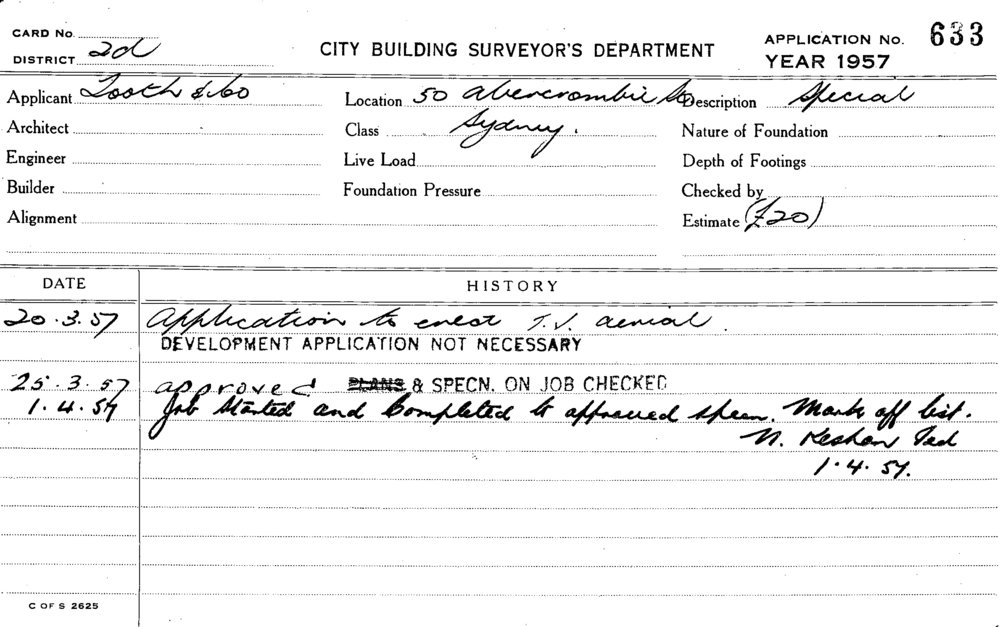 CARD No.
DISTRICT 2d
CITY BUILDING SURVEYOR'S DEPARTMENT
APPLICATION No. 633
YEAR 1957
Applicant Tooth & Co
Location 50 Abercrombie St
Description Special
Architect
Class Sydney.
Nature of Foundation
Engineer
Live Load
Depth of Footings
Builder
Foundation Pressure
Checked by
Alignment
Estimate (£20)
DATE
HISTORY
20.3.57 Application to erect T.V. aerial.
DEVELOPMENT APPLICATION NOT NECESSARY
25.3.57 approved PLANS & SPECN. ON JOB CHECKED
1.4.57 Job started and completed to approved specn. Mark off list.
N.
1.4.57.
C OF S 2625